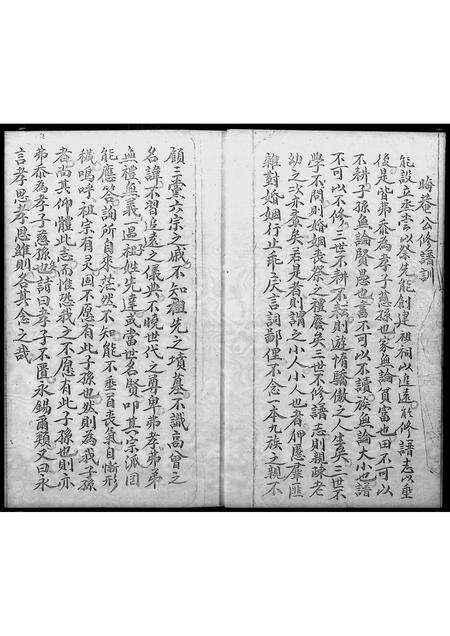 晦菴公修譜訓
能設立烝嘗以祭先能創建祖祠以追遠能修譜志以垂
後是皆弗忝為孝子慈孫也家無論貧富也田不可以
不耕子孫無論賢愚也書不可以不讀族無論大小也譜
不可以不修三世不耕不耘則遊惰驕傲之人生矣三世不
學不問則婚姻喪祭之禮廢矣三世不修譜志則親疎老
幼之次亦紊矣若是者則謂之小人小人也者仰愚羣匪
雜對婚姻行止乖戾言詞鄙俚不念一本九族之親不
顧三黨六宗之戚不知祖先之墳墓不識高曾之
名諱不習追遠之儀典不曉世代之尊卑弗孝弗弟
無禮無義一遇祖姓先達或當世名賢叩其宗派固
能應答詢所自來茫然不知能不垂首喪氣自慚形
穢嗚呼祖宗有灵固不愿有此子孫也然則為我子孫
者尚其仰體此志而惟恐我之不愿有此子孫也則亦
弗忝為孝子慈孫也詩曰孝子不匱永錫爾類又曰永
言孝思孝思維則各其念之哉